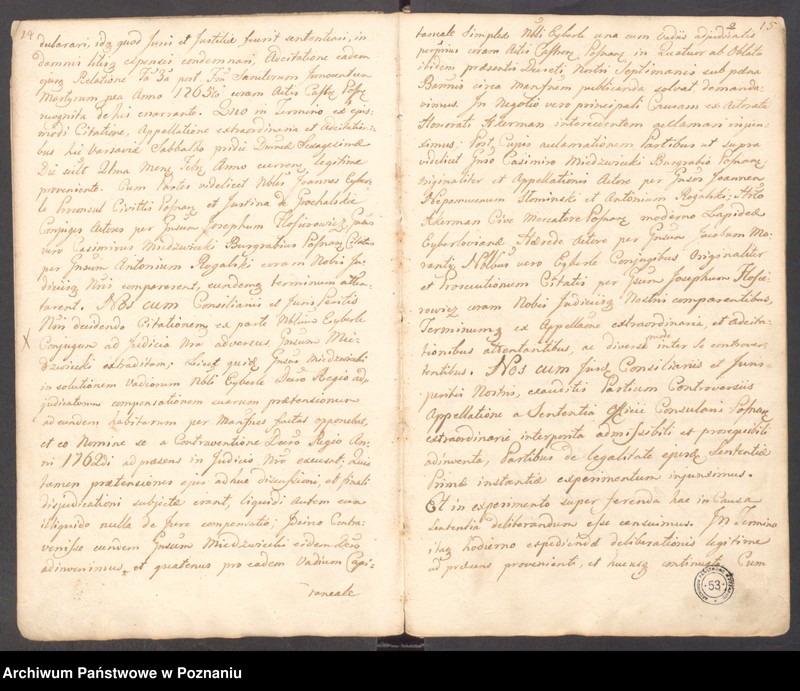 14
dularari, idq quod Juris et Justitiæ fuerit sententiari, in
damnis litisq expensis condemnari, Adcitatione eadem
ejusq Relatione post Sanctorum Innocentum
Martyrum pxa Anno 1765to coram Actis Castr Posn
recognita de his enarrante. Quo in Termino ex ejus-
modi Citatione, Appellatione extraordinaria et Adcitatio-
bus hic Varsaviæ Sabbatho pridie Dnicæ Sexagesimæ
Die Una Mens Febr Anno curren legitime
proveniente. Cum Partes videlicet Nobles Joannes Eyber-
le Proconsul Civittis Posnan et Justina de Prochalska
Conjuges Actores per Gnsum Josephum
vero Casimirus Miedzwiecki Burgrabius Posnan Citatus
per Gnsum Antonium Rogalski coram Nobis Ju-
diciisq Nris comparerent, eundemq terminum atten-
tarent. Nos cum Consiliariis et Juris Peritis
Nris decidendo Citationem ex parte Nblium Eyberle
Conjugum ad Judicia Nra adversus Gnsum Mie-
dzwiecki extraditam; Licet quidem Gnsus Miedzwiecki
in solutionem Vadiorum Nbli Eyberle Dcto Regio ad-
judicatorum compensationem suarum prætensionum
ad eundem habitarum per Manfres factas opponebat,
et eo Nomine se a Contraventione Dcto Regio An-
ni 1762di ad præsens in Judicio Nro excusat; Quia
tamen prætensiones ejus adhuc discussioni, et finali
disjudicationi subjectæ erant, liquidi autem cum
illiquido nulla de jure compensatio; Ideirco Contra-
venisse eundem Gnsum Miedzwiecki eidem Dcto
adinvenimus, et quatenus pro eadem Vadium Capi-
taneale
15
taneale Simplex Nbli Eyberle una cum Vadiis adjudicatis
coram Actis Castren Posnan in Quatuor ab Oblata
ibidem præsentis Decreti Nostri Septimanis sub pæna
Bannis circa Manfrem publicanda solvat demanda-
vimus. In Negotio vero principali Causam ex Actoratu
Honorati Akerman intercedentem acclamari injun-
ximus. Post Cujus acclamationem Partibus ut supra
videlicet Gnso Casimiro Miedzwiecki Burgrabio Posnan
Originaliter et Appellationis Actore per Gnsos Joannem
Nepomucenum Słominski et Antonium Rogalski; Hrto
Akerman Cive Mercatore Posnan moderno Lapideæ
Eyberlovianæ Hærede Actore per Gnsum Jacobum Mo-
Nblibus vero Eyberle Conjugibus Originaliter
et Prosecutionum Citatis per Gnsum Josephum
coram Nobis Judiciisq Nostris comparentibus,
Terminumq ex Appellaone extraordinaria, et adcita-
tionibus attentantibus, ac diversimode inter se controver-
tentibus. Nos cum Consiliariis et Juris-
peritis Nostris, exauditis Partium Controversiis
Appellatione a Sententia Officii Consularis Posnan
extraordinarie interposita admissibili et prosequibili
adinventa, Partibus de legalitate ejusdem Sententiæ
Primæ instantiæ experimentum injunximus.
Et in experimento super ferenda hac in Causa
Sententia deliberandum esse censuimus. In Termino
itaq hodierno expediendæ deliberationis legitime
ad præsens proveniente, et hucusq continuato. Cum
53
Archiwum Państwowe w Poznaniu